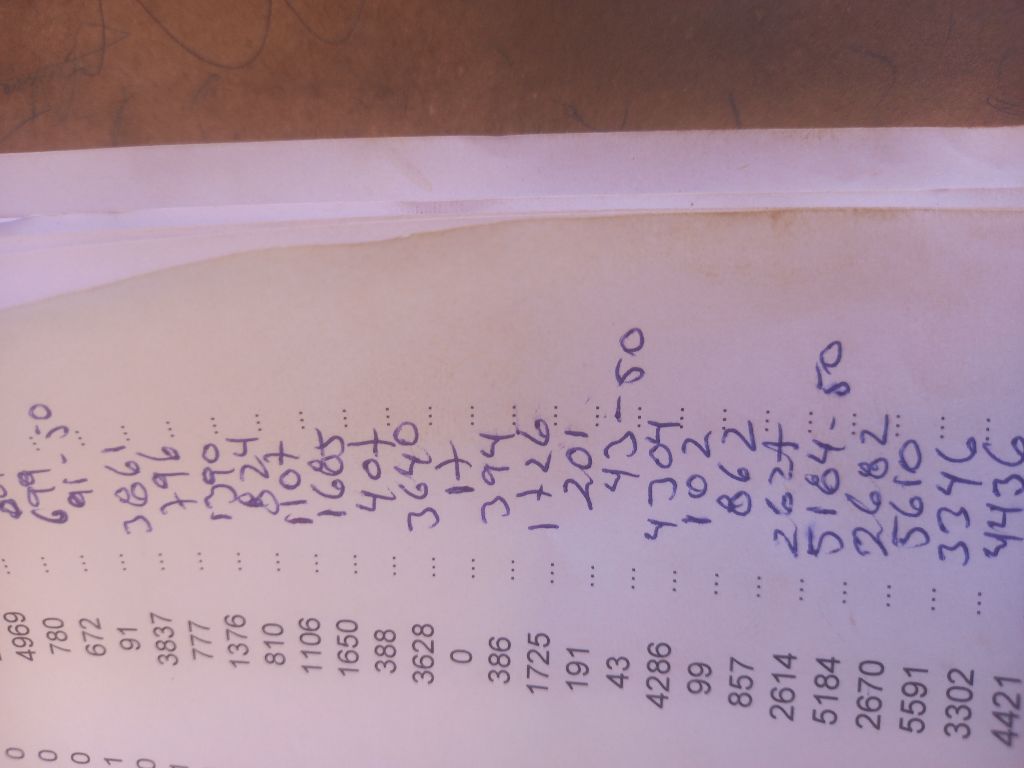 0 4969 ...
0 780 ...
0 672 ... 699 ...
1 91 ... 91 - 50
0 3837 ... 3861 ...
777 ... 796 ...
1376 ... 1390 ...
810 ... 824 ...
1106 ... 1107 ...
1650 ... 1685 ...
388 ... 407 ...
3628 ... 3640 ...
0 ... 17 ...
386 ... 394 ...
1725 ... 1726 ...
191 ... 201 ...
43 ... 43 - 50
4286 ... 4304 ...
99 ... 102 ...
857 ... 862 ...
2614 ... 2627 ...
5184 ... 5184 - 50
2670 ... 2682 ...
5591 ... 5610 ...
3302 ... 3346 ...
4421 ... 4436 ...